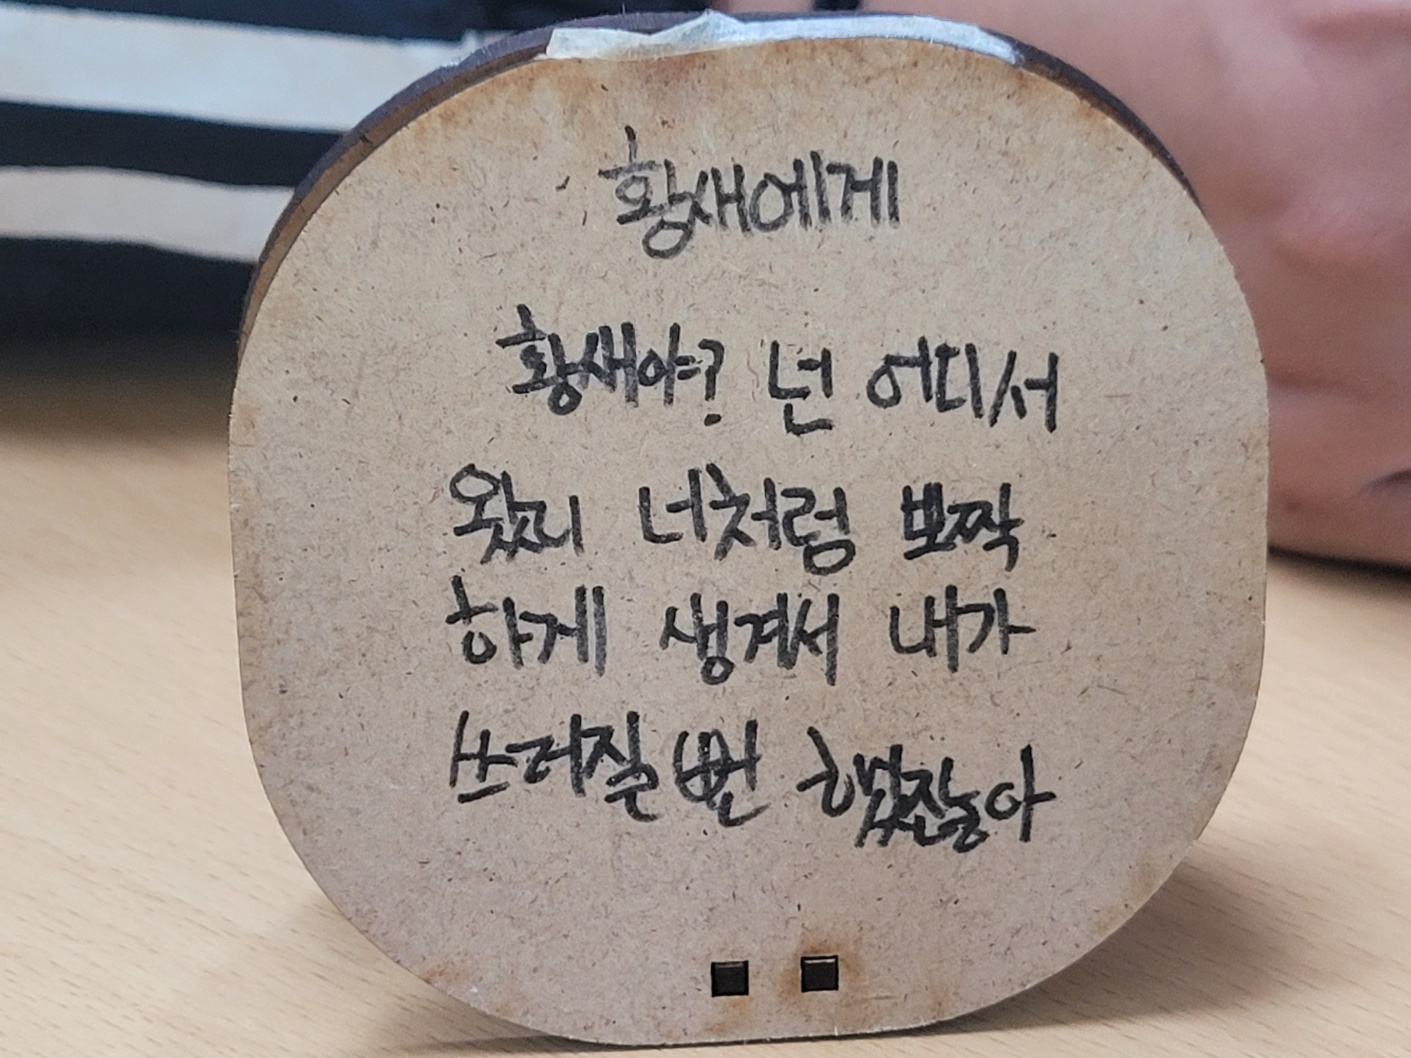 황새에게
황새야? 넌 어디서
왔니 너처럼 뽀짝
하게 생겨서 내가
쓰러질 뻔 했잖아